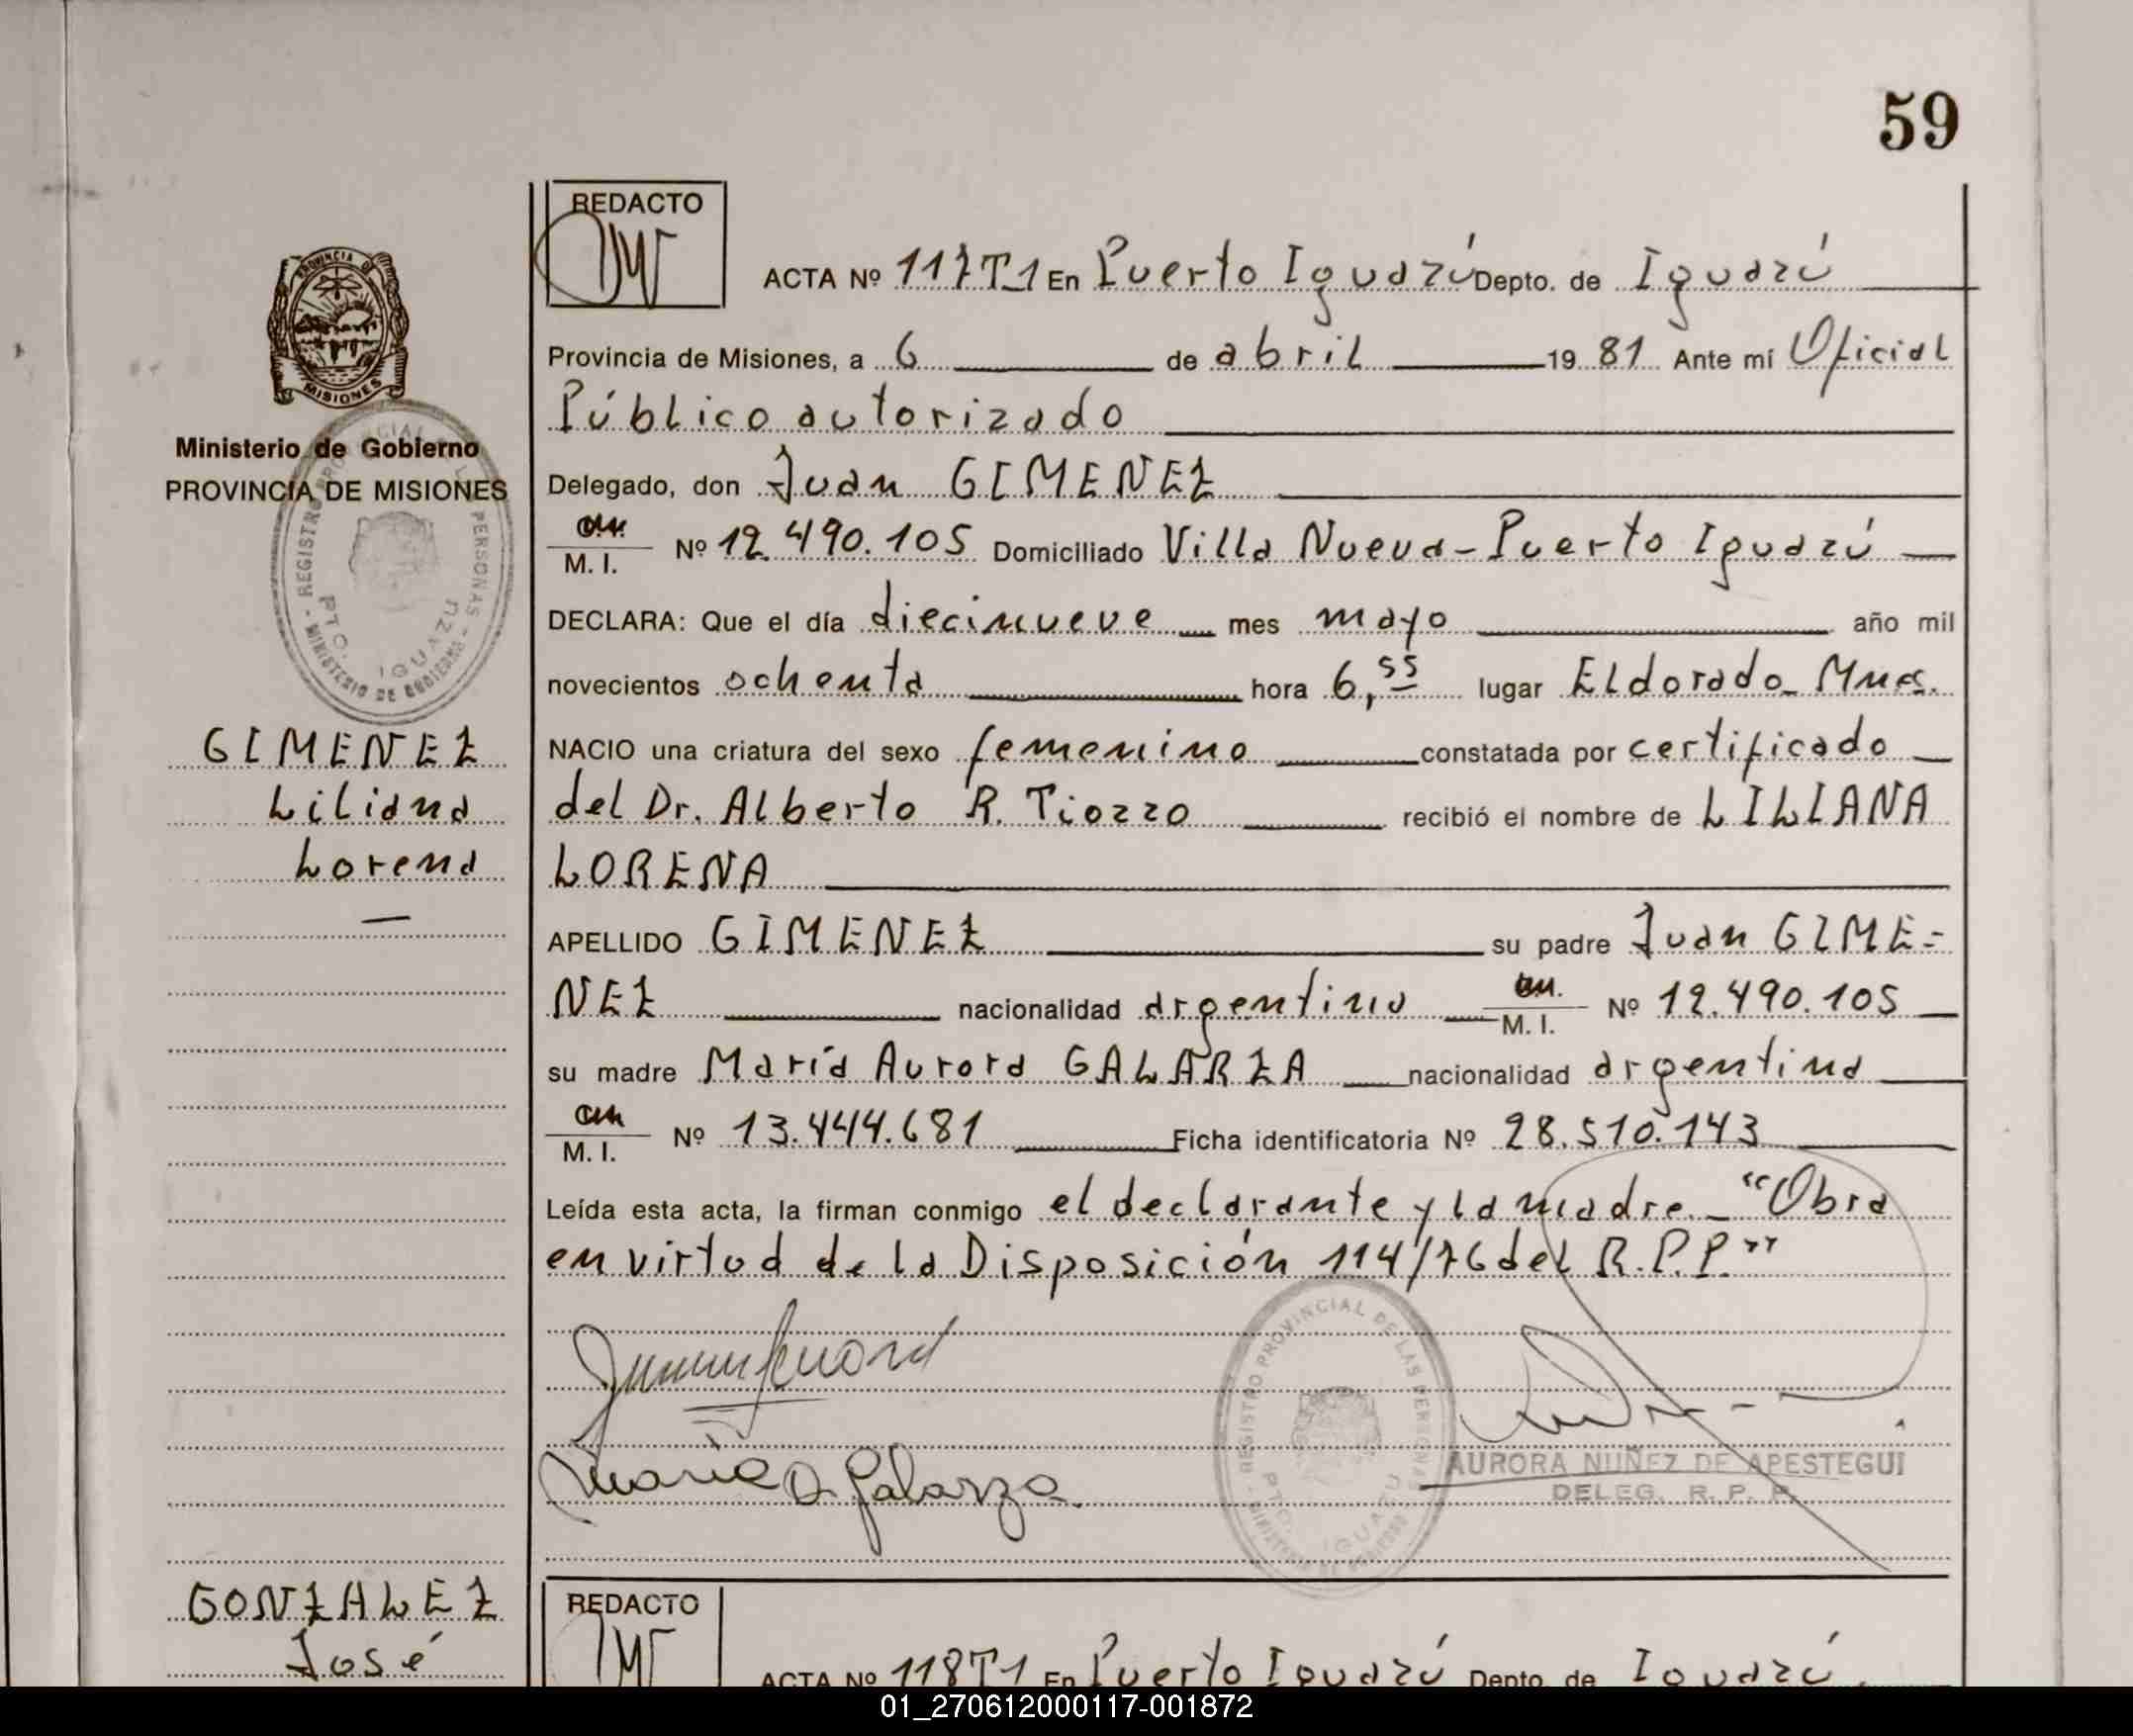 59
REDACTO
ACTA Nº 117T1 En Puerto Iguazú Depto. de Iguazú
Provincia de Misiones, a 6 de abril 1981 Ante mí Oficial
Público autorizado
Ministerio de Gobierno
PROVINCIA DE MISIONES
Delegado, don Juan GIMENEZ
M. I. Nº 12.490.105 Domiciliado Villa Nueva - Puerto Iguazú
DECLARA: Que el día diecinueve mes mayo año mil
novecientos ochenta hora 6,55 lugar Eldorado Mnes.
GIMENEZ
Liliana
Lorena
NACIO una criatura del sexo femenino constatada por certificado
del Dr. Alberto R. Tiozzo recibió el nombre de LILIANA
LORENA
APELLIDO GIMENEZ su padre Juan GIME-
NEZ nacionalidad argentino M. I. Nº 12.490.105
su madre María Aurora GALARZA nacionalidad argentina
M. I. Nº 13.444.681 Ficha identificatoria Nº 28.510.143
Leída esta acta, la firman conmigo el declarante y la madre. - "Obra
en virtud de la Disposición 114/76 del R.P.P."
María A. Galarza
REGISTRO PROVINCIAL DE LAS PERSONAS
PTO. IGUAZU
AURORA NUÑEZ DE APESTEGUI
DELEG. R. P. P.
GONZALEZ
José
REDACTO
ACTA Nº 118T1 En Puerto Iguazú Depto. de Iguazú
01_270612000117-001872